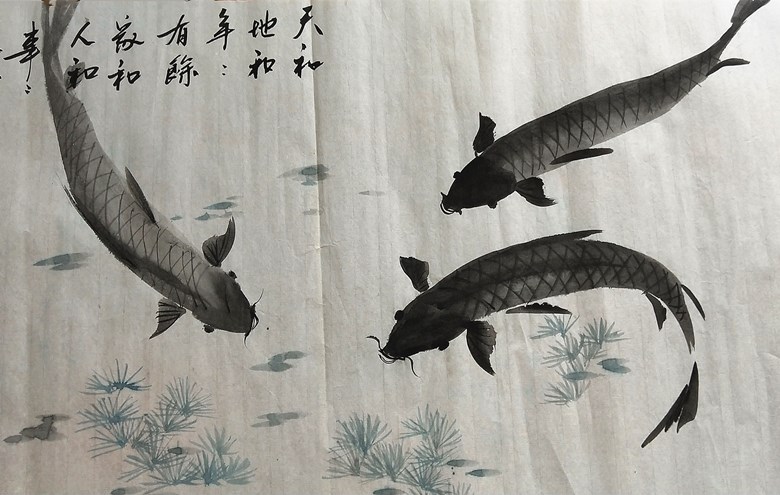 天和
地和
年〻
有餘
家和
人和
事〻